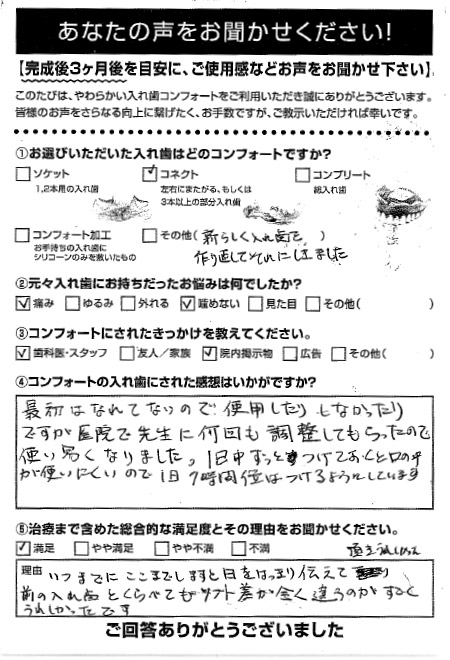 あなたの声をお聞かせください!
【完成後3ヶ月後を目安に、ご使用感などお声をお聞かせ下さい】
このたびは、やわらかい入れ歯コンフォートをご利用いただき誠にありがとうございます。
皆様のお声をさらなる向上に繋げたく、お手数ですが、ご教示いただければ幸いです。
①お選びいただいた入れ歯はどのコンフォートですか?
□ソケット ☑コネクト □コンプリート
1,2本用の入れ歯 左右にまたがる、もしくは 総入れ歯
3本以上の部分入れ歯
□コンフォート加工 □その他( 新らしく入れ歯を )
お手持ちの入れ歯に 作り直してそれにしました
シリコーンのみを敷いたもの
②元々入れ歯にお持ちだったお悩みは何でしたか?
☑痛み □ゆるみ □外れる ☑噛めない □見た目 □その他( )
③コンフォートにされたきっかけを教えてください。
☑歯科医・スタッフ □友人/家族 ☑院内掲示物 □広告 □その他( )
④コンフォートの入れ歯にされた感想はいかがですか?
最初はなれてないので使用したりしなかったり
ですが医院で先生に何回も調整してもらったので
使い易くなりました。1日中ずっとつけておくと口の中
が使いにくいので1日7時間位はつけるようにしています
⑤治療まで含めた総合的な満足度とその理由をお聞かせください。
☑満足 □やや満足 □やや不満 □不満
理由 いつまでにここまでしますと日をはっきり伝えて
前の入れ歯とくらべてもソフト差が全く違うのがすごく
うれしかったです
ご回答ありがとうございました